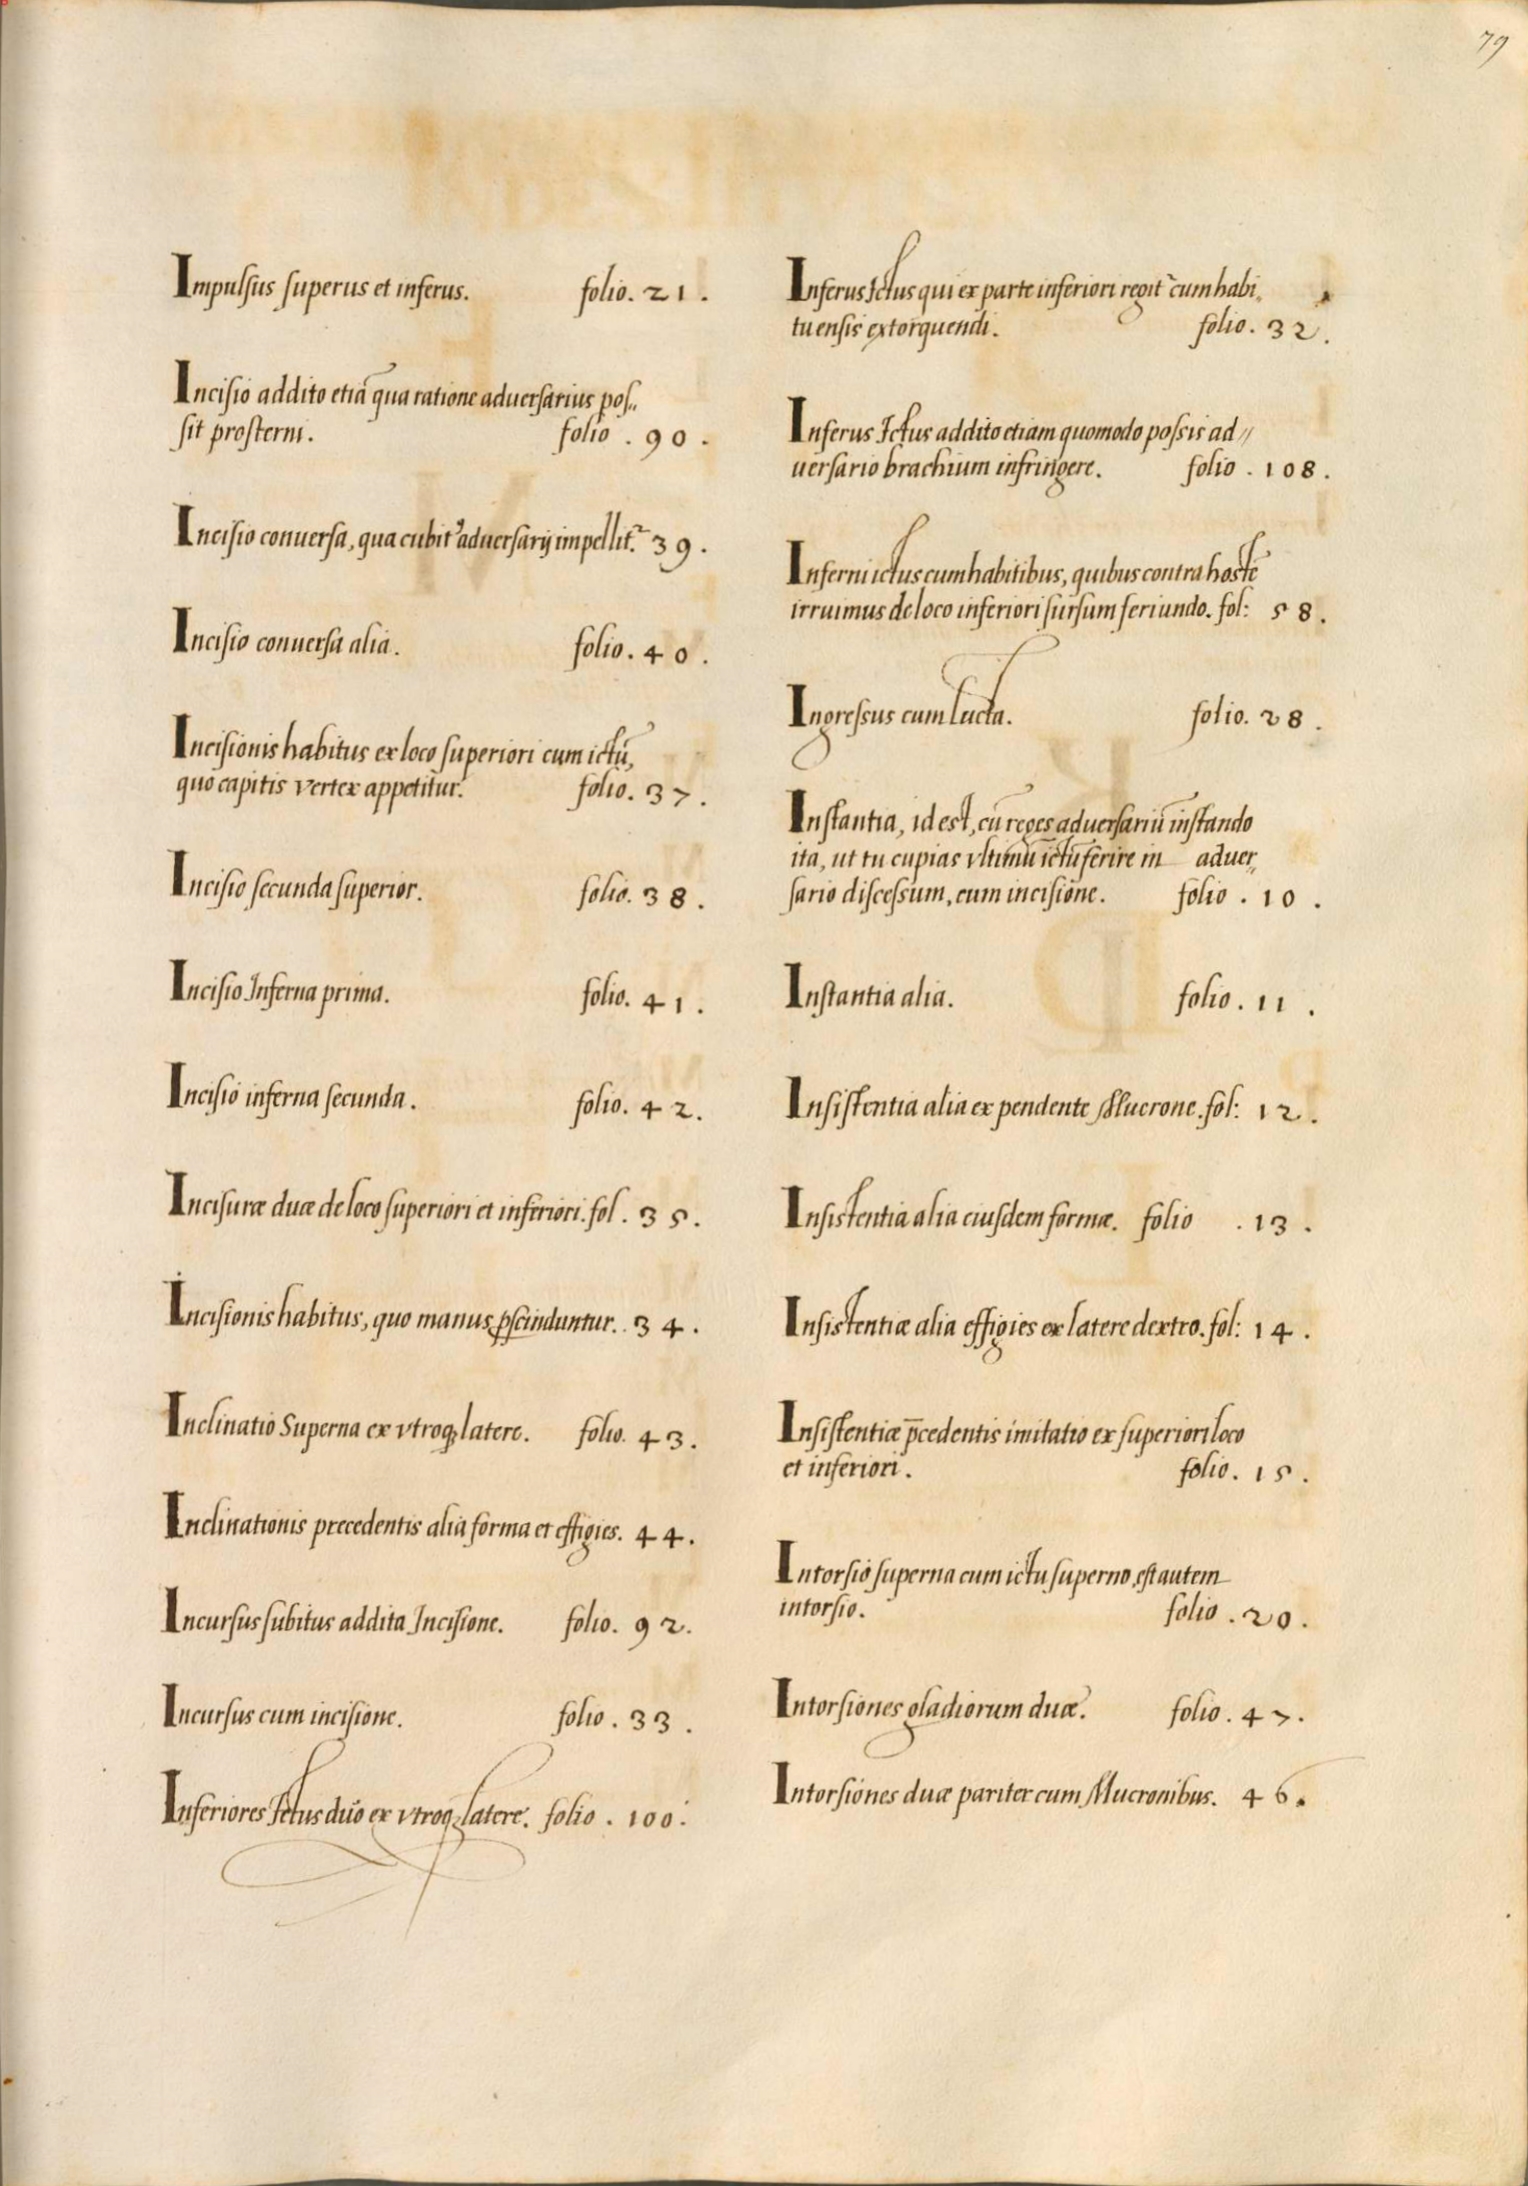 79
Impulsus superus et inferus. folio. 21.
Incisio addito etiā qua ratione aduersarius pos„
sit prosterni. folio . 90.
Incisio conuersa, qua cubitꝰ aduersarij impellit᷑. 39.
Incisio conuersa alia. folio. 40.
Incisionis habitus ex loco superiori cum ictu,
quo capitis vertex appetitur. folio. 37.
Incisio secunda superior. folio. 38.
Incisio Inferna prima. folio. 41.
Incisio inferna secunda. folio. 42.
Incisuræ duæ de loco superiori et inferiori. fol. 35.
Incisionis habitus, quo manus p̱scinduntur. . 34.
Inclinatio Superna ex vtroqꝫ latere. folio. 43.
Inclinationis precedentis alia forma et effigies. 44.
Incursus subitus addita Incisione. folio. 92.
Incursus cum incisione. folio. 33.
Inferiores Ictus duo ex vtroqꝫ latere. folio . 100.
Inferus Ictus qui ex parte inferiori regit᷑ cum habi„
tu ensis extorquendi. folio. 32.
Inferus Ictus addito etiam quomodo possis ad〃
uersario brachium infringere. folio . 108.
Inferni ictus cum habitibus, quibus contra hostē
irruimus de loco inferiori sursum feriundo. fol: 58.
Ingressus cum lucta. folio. 28.
Instantia, id est, cū reges aduersariū instando
ita, ut tu cupias vltimū ictū ferire in aduer„
sario discessum, cum incisione. folio . 10 .
Instantia alia. folio . 11 .
Insistentia alia ex pendente Mucrone. fol: 12.
Insistentia alia eiusdem formæ. folio . 13.
Insistentiæ alia effigies ex latere dextro. fol: 14.
Insistentiæ p̄cedentis imitatio ex superiori loco
et inferiori. folio. 15.
Intorsio superna cum ictu superno, est autem
intorsio. folio . 20.
Intorsiones gladiorum duæ. folio. 47.
Intorsiones duæ pariter cum Mucronibus. 46.